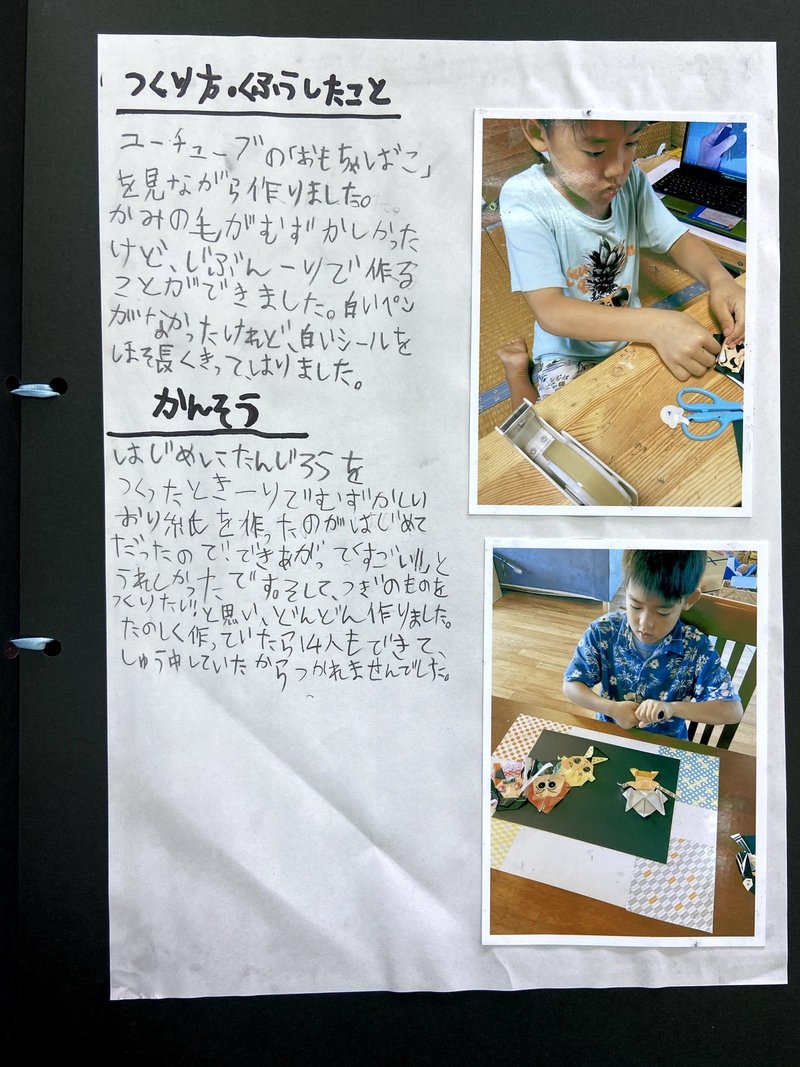 つくり方・くふうしたこと
ユーチューブの「おもちゃばこ」
を見ながら作りました。
かみの毛がむずかしかった
けど、じぶん一りで作る
ことができました。白いペン
がなかったけれど、白いシールを
ほそ長くきって、はりました。
かんそう
はじめにたんじろうを
つくったとき一りでむずかしい
おり紙を作ったのがはじめて
だったので、できあがって「すごい!!」と
うれしかったです。そして、つぎのものを
つくりたい!と思い、どんどん作りました。
たのしく作っていたら14人もできて、
しゅう中していたからつかれませんでした。